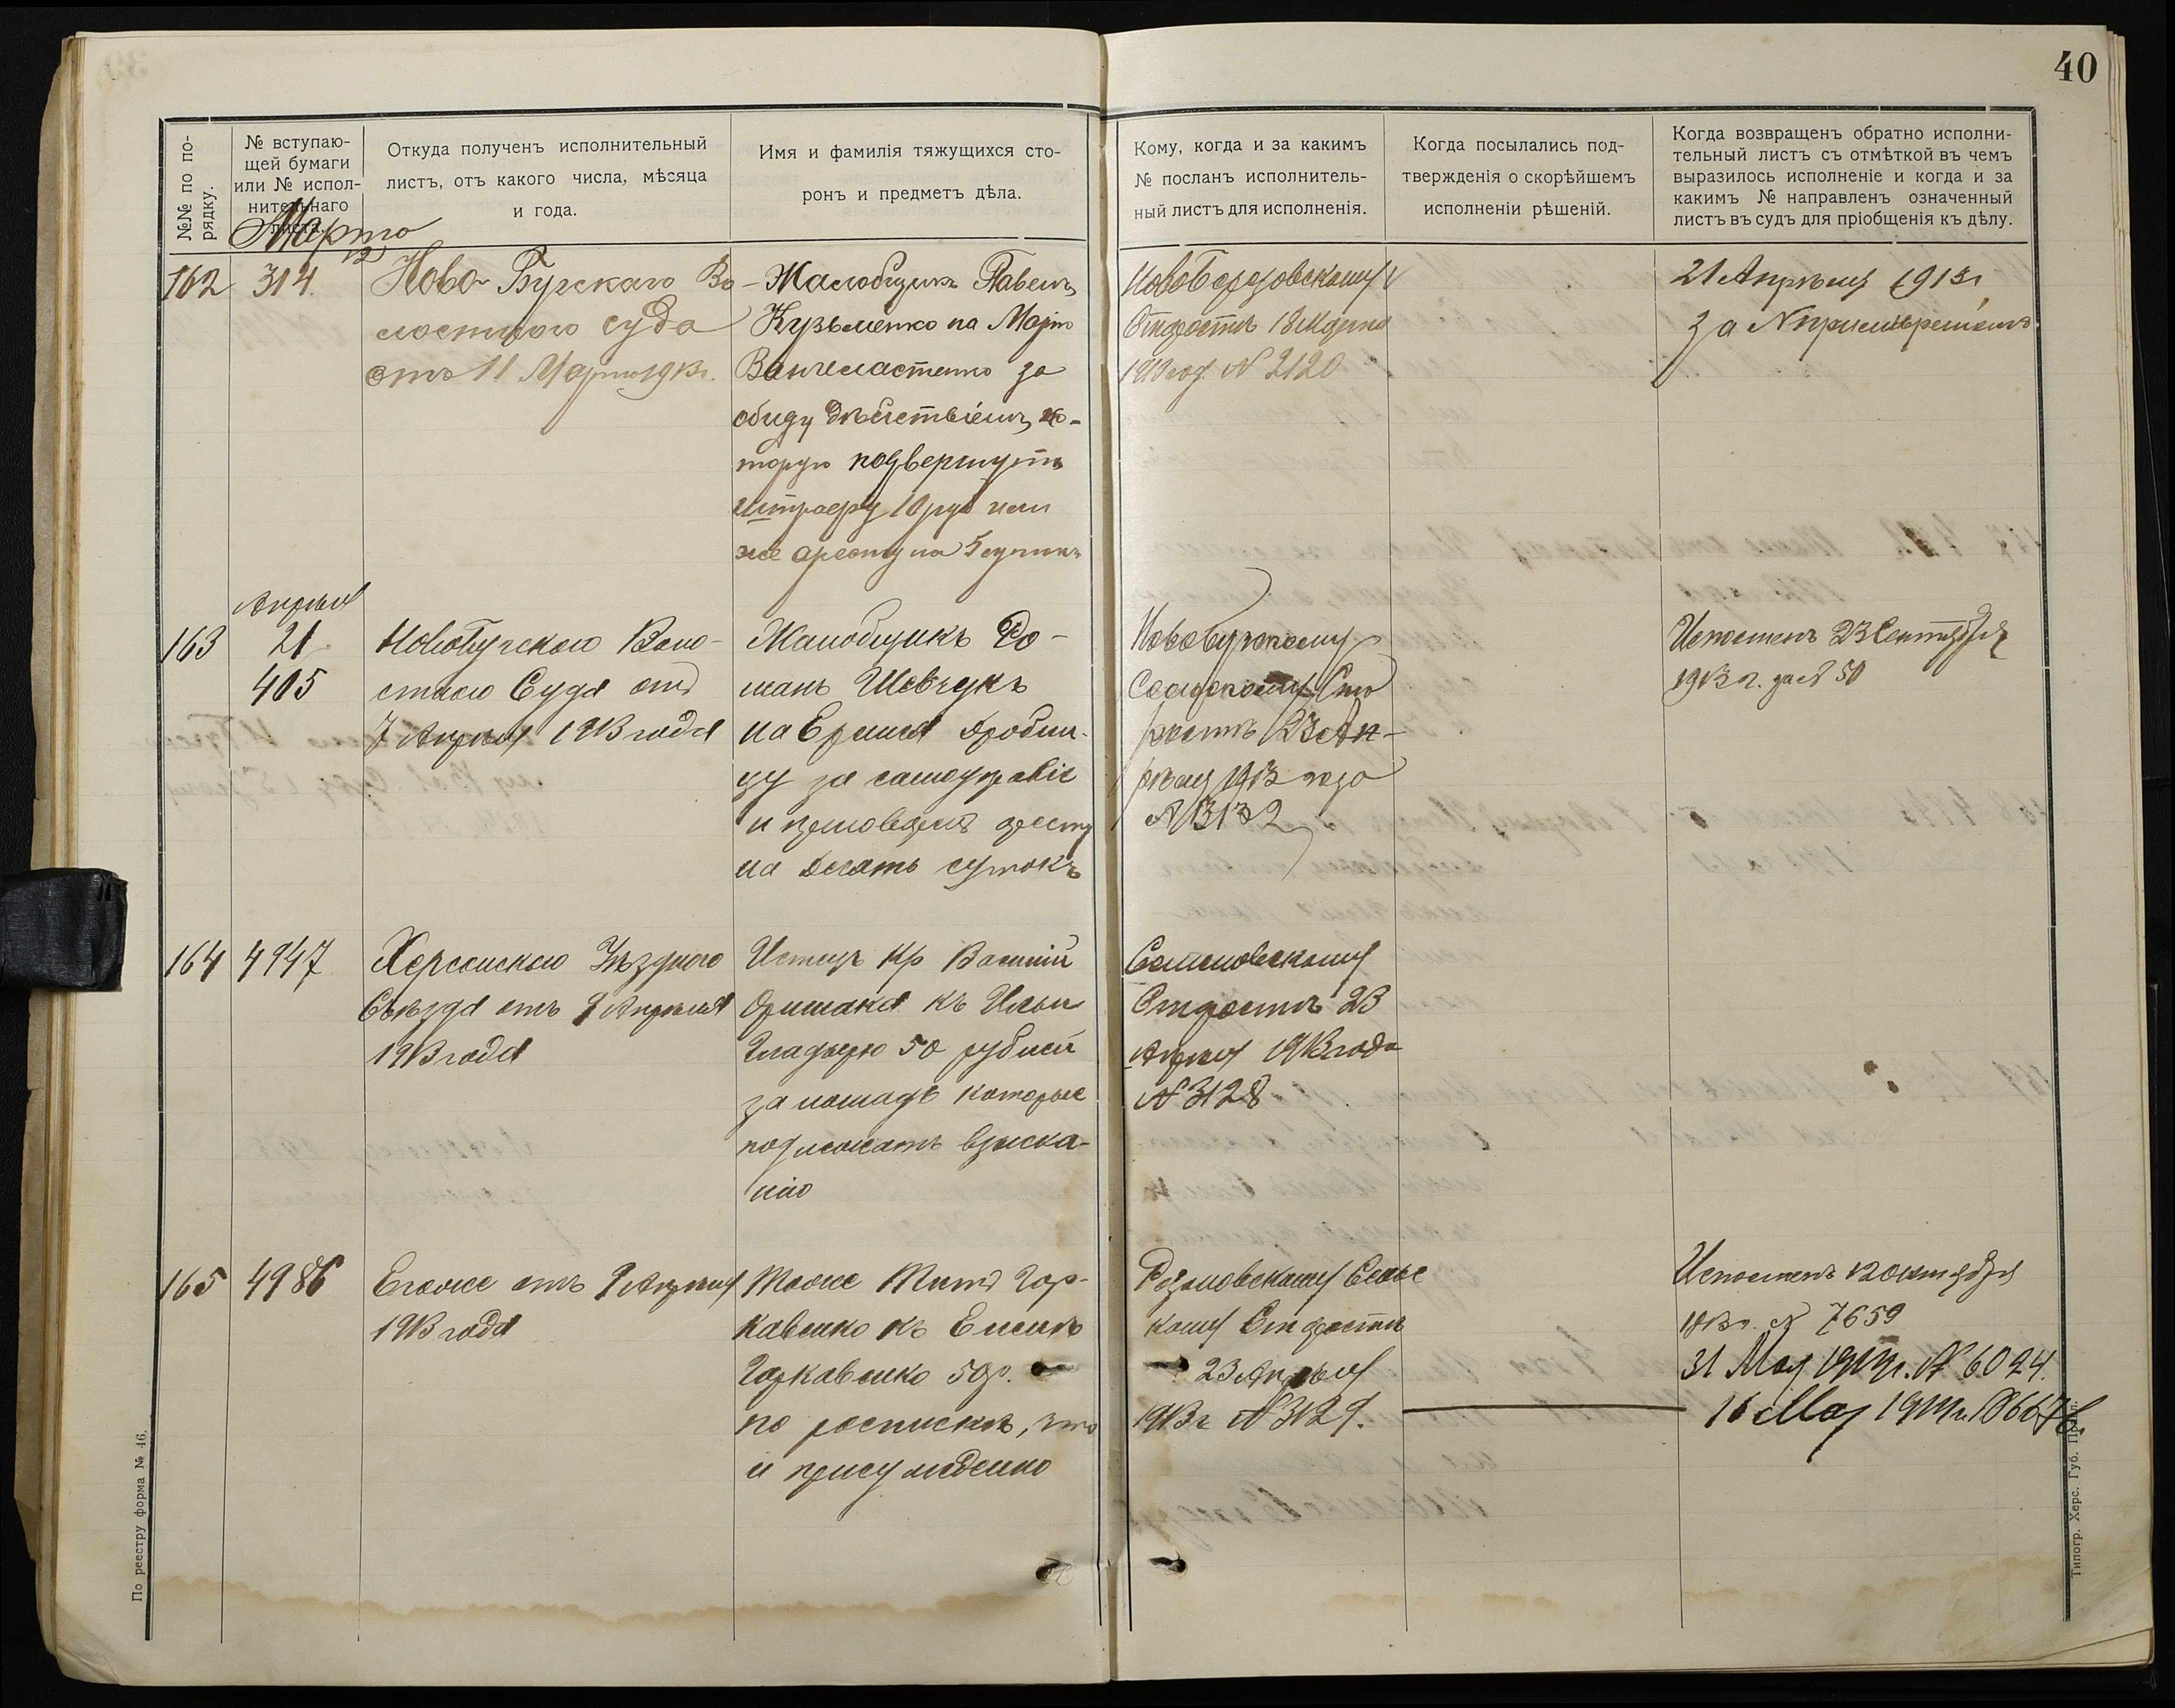 40
№№ по по-
рядку.
№ вступаю-
щей бумаги
или № испол-
нительнаго
листа.
Откуда полученъ исполнительный
листъ, отъ какого числа, мѣсяца
и года.
Имя и фамилія тяжущихся сто-
ронъ и предметъ дѣла.
Кому, когда и за какимъ
№ посланъ исполнитель-
ный листъ для исполненія.
Когда посылались под-
твержденія о скорѣйшемъ
исполненіи рѣшеній.
Когда возвращенъ обратно исполни-
тельный листъ съ отмѣткой въ чемъ
выразилось исполненіе и когда и за
какимъ № направленъ означенный
листъ въ судъ для пріобщенія къ дѣлу.
Марта
12
162
314.
Ново-Бугскаго Во-
лостного суда
отъ 11 Марта 1913 г.
Жалобщикъ Павелъ
Кузьменко на
за
обиду дѣйствіемъ, ко-
торую подвергнуть
штрафу 10 руб или
же аресту на 5 сутокъ
Старостѣ 18 Марта
1913 год. № 2120
21 Апрѣля 1913 г.
за №
Апрѣля
163
21
405
Новобугскаго Воло-
стного Суда отъ
7 Апрѣля 1913 года
Жалобщикъ Ро-
манъ Шевчукъ
на
за самоуправіе
и аресту
на десять сутокъ
Новобугскому
Сельскому Ста
ростѣ 23 Ап-
рѣля 1913 года
№ 3132
Исполненъ 23 Сентября
1913 г. за № 50
164
4947
Херсонскаго Уѣзднаго
Съѣзда отъ 9 Апрѣля
1913 года
Истецъ Кр Василій
къ Ильи
50 рублей
за лошадь которые
подлежатъ взыска-
нію
Семеновскому
Старостѣ 23
Апрѣля 1913 года
№ 3128
165
4986
Егоже отъ 9 Апрѣля
1913 года
Тоже Титъ Гор-
кавенко къ
Горкавенко 50 р.
по роспискѣ, что
и присуждено
Розановскому Сельс
кому Старостѣ
23 Апрѣля
1913 г. № 3129.
Исполненъ 12 октября
1913 г. № 7659
31 Мая 1914 г. № 6024.
16 Мая 1914 г.
По реестру форма № 46.
Типогр. Херс. Губ. Прав.